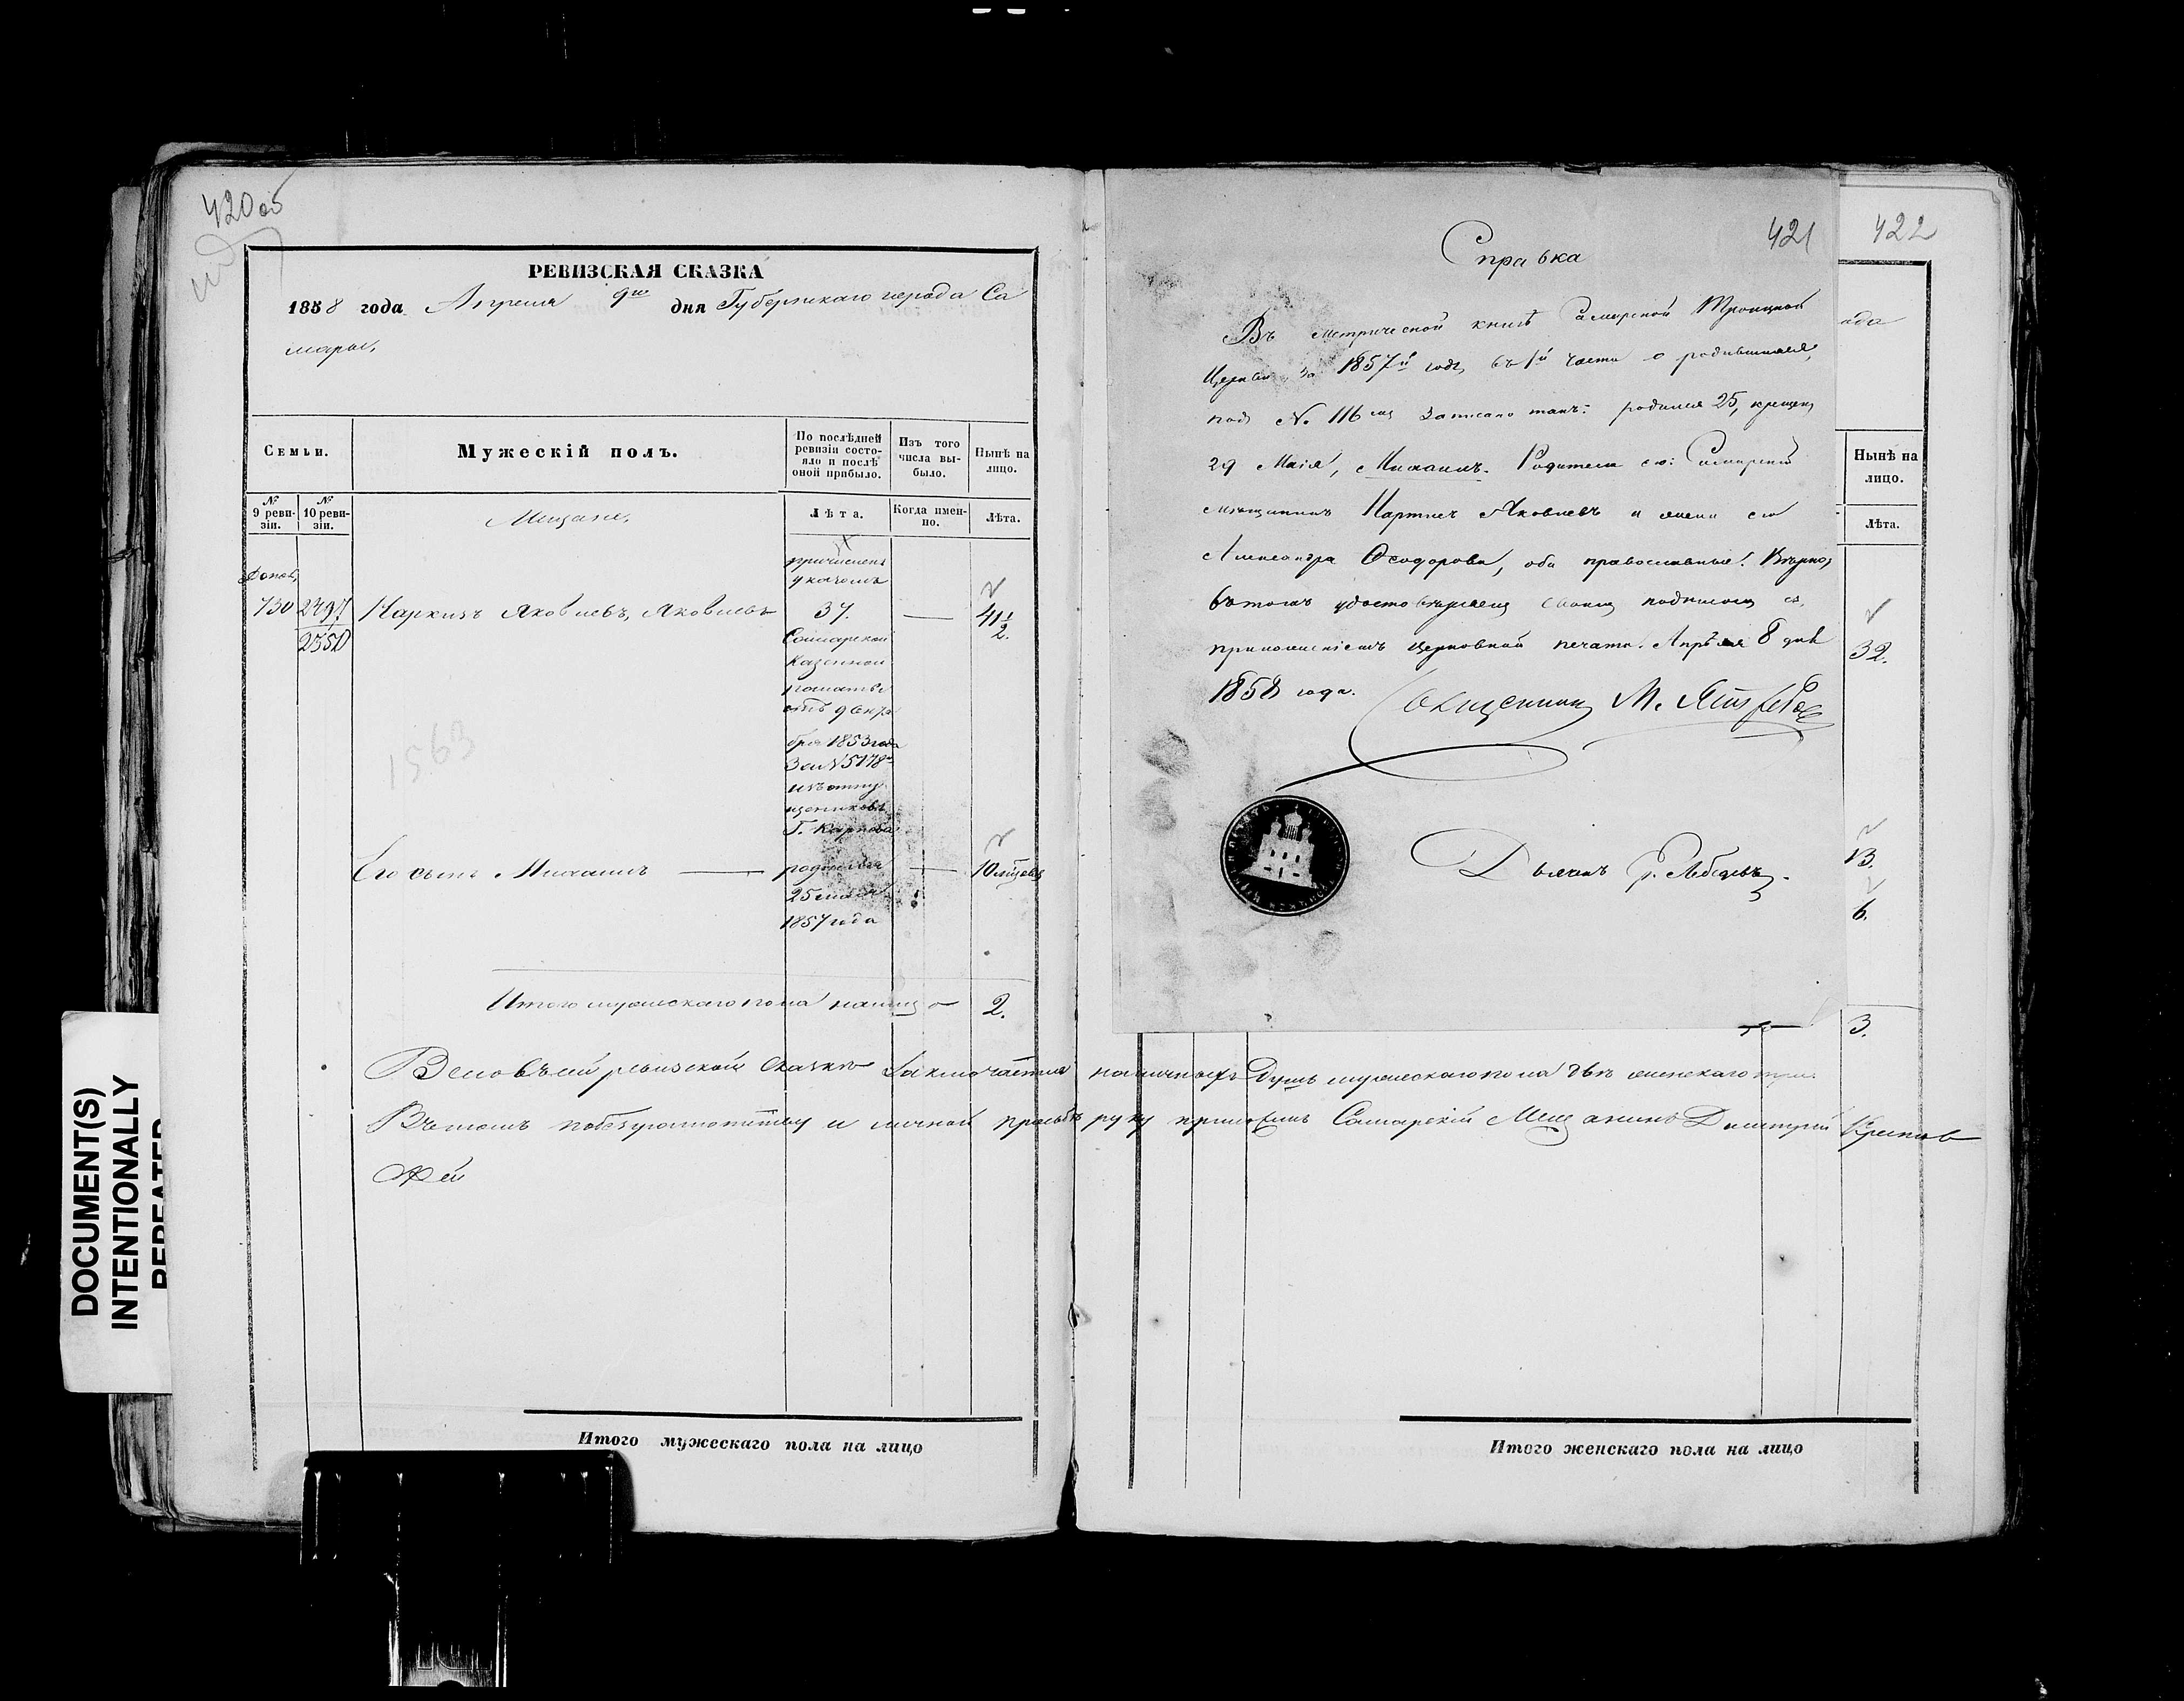 420 об
РЕВИЗСКАЯ СКАЗКА
1858 года Апреля 9го дня Губернскаго города Са
мары,
Семьи.
Мужескій полъ.
По послѣдней ревизіи состояло и послѣ оной прибыло.
Изъ того числа выбыло.
Нынѣ на лицо.
№ 9 ревизіи.
№ 10 ревизіи.
Мещане,
Лѣта.
Когда именно.
Лѣта.
причислен
указомъ
730 2497 Яковлевъ, Яковлевъ 37. — 41½.
2350
Самарской
Казенной
палаты
отъ 9 Октя
бря 1853 года
За № 5178
изъ отпу
щенниковъ
Г. Карпова
1563
Его сынъ Михаилъ — родился — 10 мѣсяц
25 мая
1857 года
Итого мужескаго пола налицо 2.
Всего въ сей ревизской сказкѣ заключается наличныхъ Душъ мужескаго пола двѣ женскаго три.
Въ томъ по безграмотству и личной просьбѣ руку приложилъ Самарскій Мещанинъ Дмитрий
Итого мужескаго пола на лицо
421
Справка
Въ метрической книгѣ Самарской Троицкой
Церкви, за 1857й годъ, въ 1й части о родившихся,
подъ № 116мъ записано такъ: родился 25, крещенъ
29 Маія, Михаилъ. Родители его: Самарскій
мѣщанинъ Яковлевъ и жена его
Александра Ѳеодорова, оба православные. Вѣрно,
въ томъ удостовѣряемъ своимъ подписомъ съ
приложеніемъ церковной печати. Апрѣля 8 дня
1858 года. Священникъ М.
Дьяконъ Лебедевъ.
422
ода
Нынѣ на лицо.
Лѣта.
32.
13.
6.
3.
Итого женскаго пола на лицо
DOCUMENT(S)
INTENTIONALLY
REPEATED